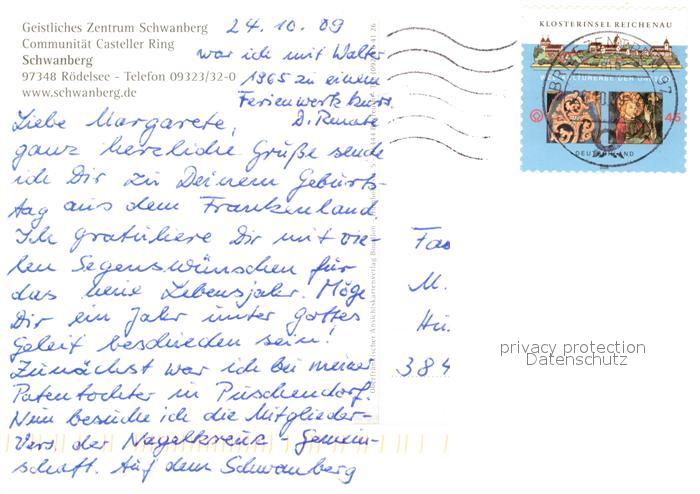 Geistliches Zentrum Schwanberg
Communität Casteller Ring
Schwanberg
97348 Rödelsee - Telefon 09323/32-0
www.schwanberg.de
24.10.09
Liebe Margarete,
ganz herzliche Grüße sende
ich Dir zu Deinem Geburts-
tag aus dem Frankenland
Ich gratuliere Dir mit vie-
len Segenswünschen für
das neue Lebensjahr. Möge
Dir ein Jahr unter Gottes
Geleit beschieden sein!
Zunächst war ich bei meiner
Patentochter in Püschendorf.
Nun besuche ich die Mitglieder-
Vers. der Nagelkreuz-Gemein-
schaft. Auf dem Schwanberg
war ich mit Walter
1965 zu einem
Ferienwerkkurs.
D. Renate
KLOSTERINSEL REICHENAU
45
DEUTSCHLAND
BRIEFZENTRUM 97
M.
384
privacy protection
Datenschutz